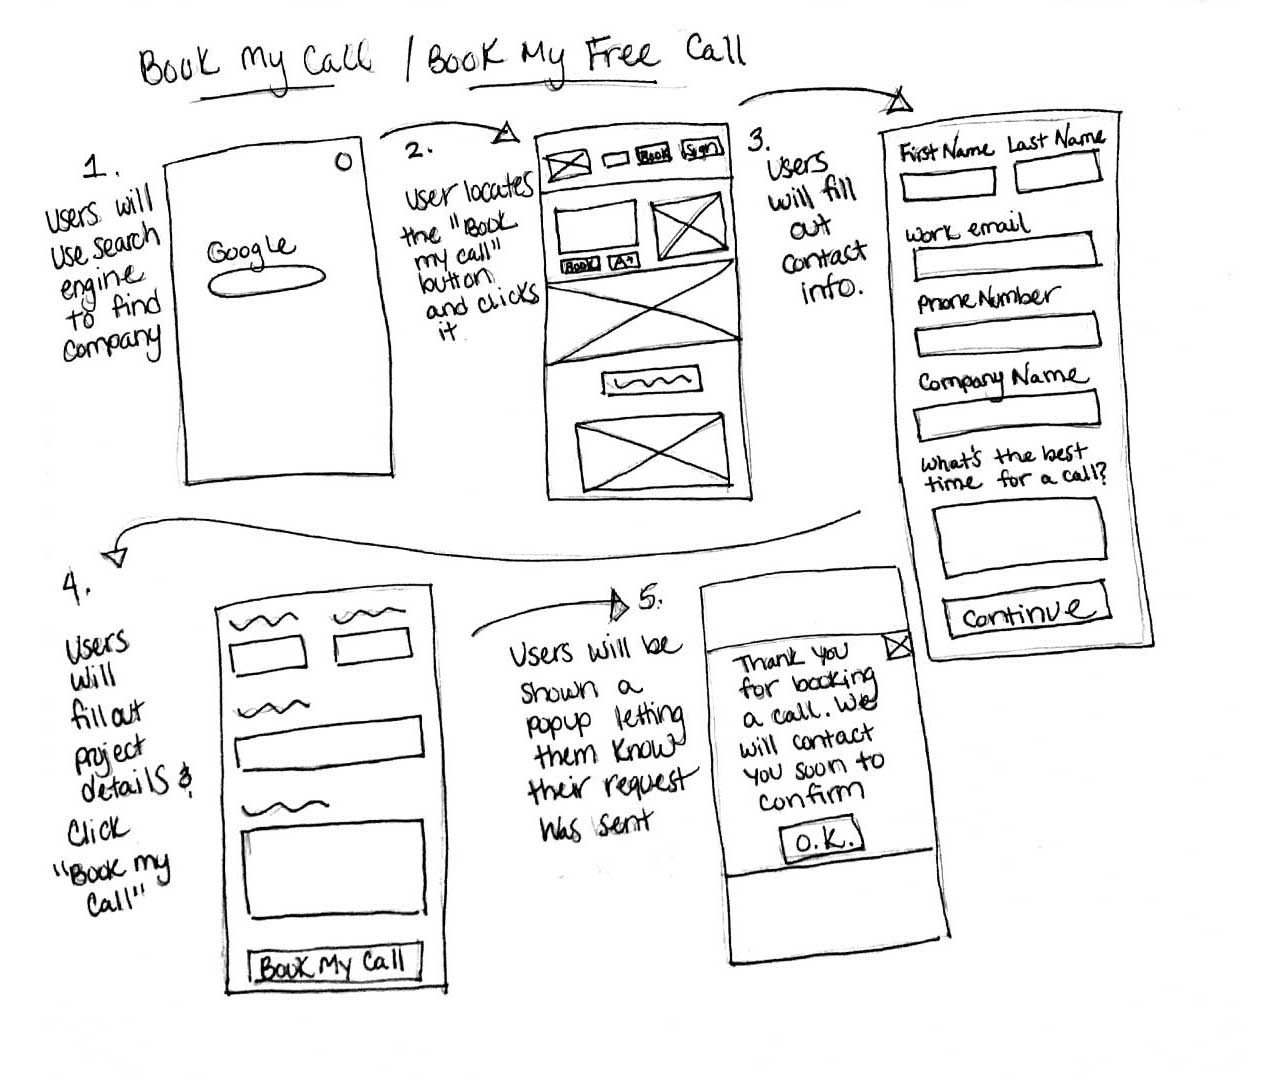 Book My Call / Book My Free Call
1.
Users will
use search
engine
to find
company
Google
2.
User locates
the "Book
my call"
button
and clicks
it
Book
Sign
Book
A+
3.
Users
will fill
out
contact
info.
First Name Last Name
Work email
Phone Number
Company Name
What's the best
time for a call?
Continue
4.
Users
Will
fill out
project
details &
Click
"Book my
Call"
Book My Call
5.
Users will be
shown a
popup letting
them know
their request
was sent
Thank you
for booking
a call. We
will contact
you soon to
confirm
O.K.